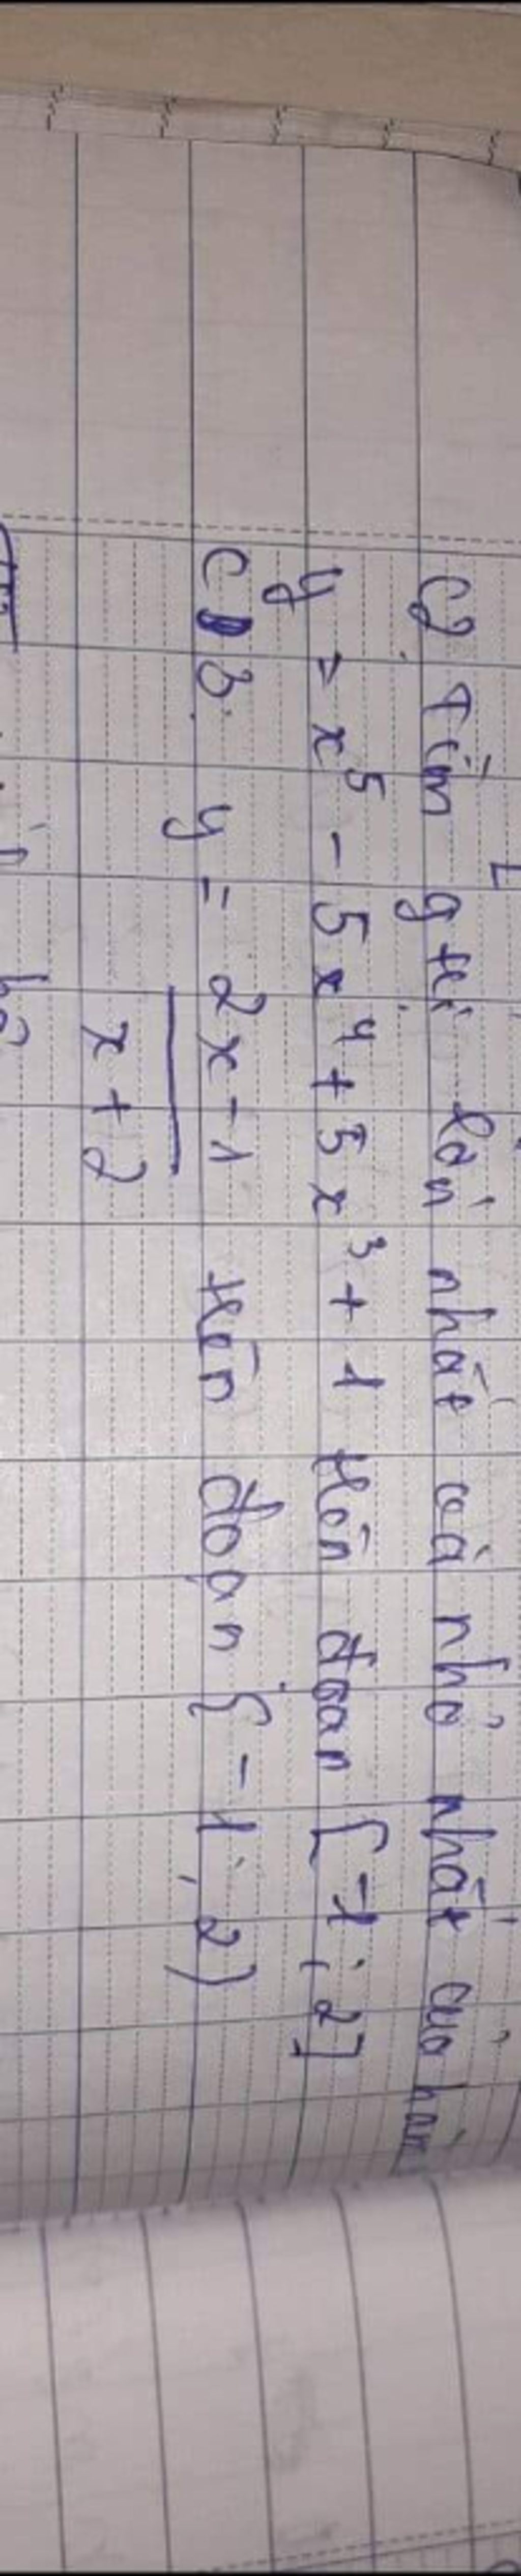 c2 Tìm gtrị lớn nhất và nhỏ nhất của hàm
y = x⁵ - 5x⁴ + 5x³ + 1 trên đoạn [-1; 2]
C b. y = \frac{2x-1}{x+2} trên đoạn {-1; 2)